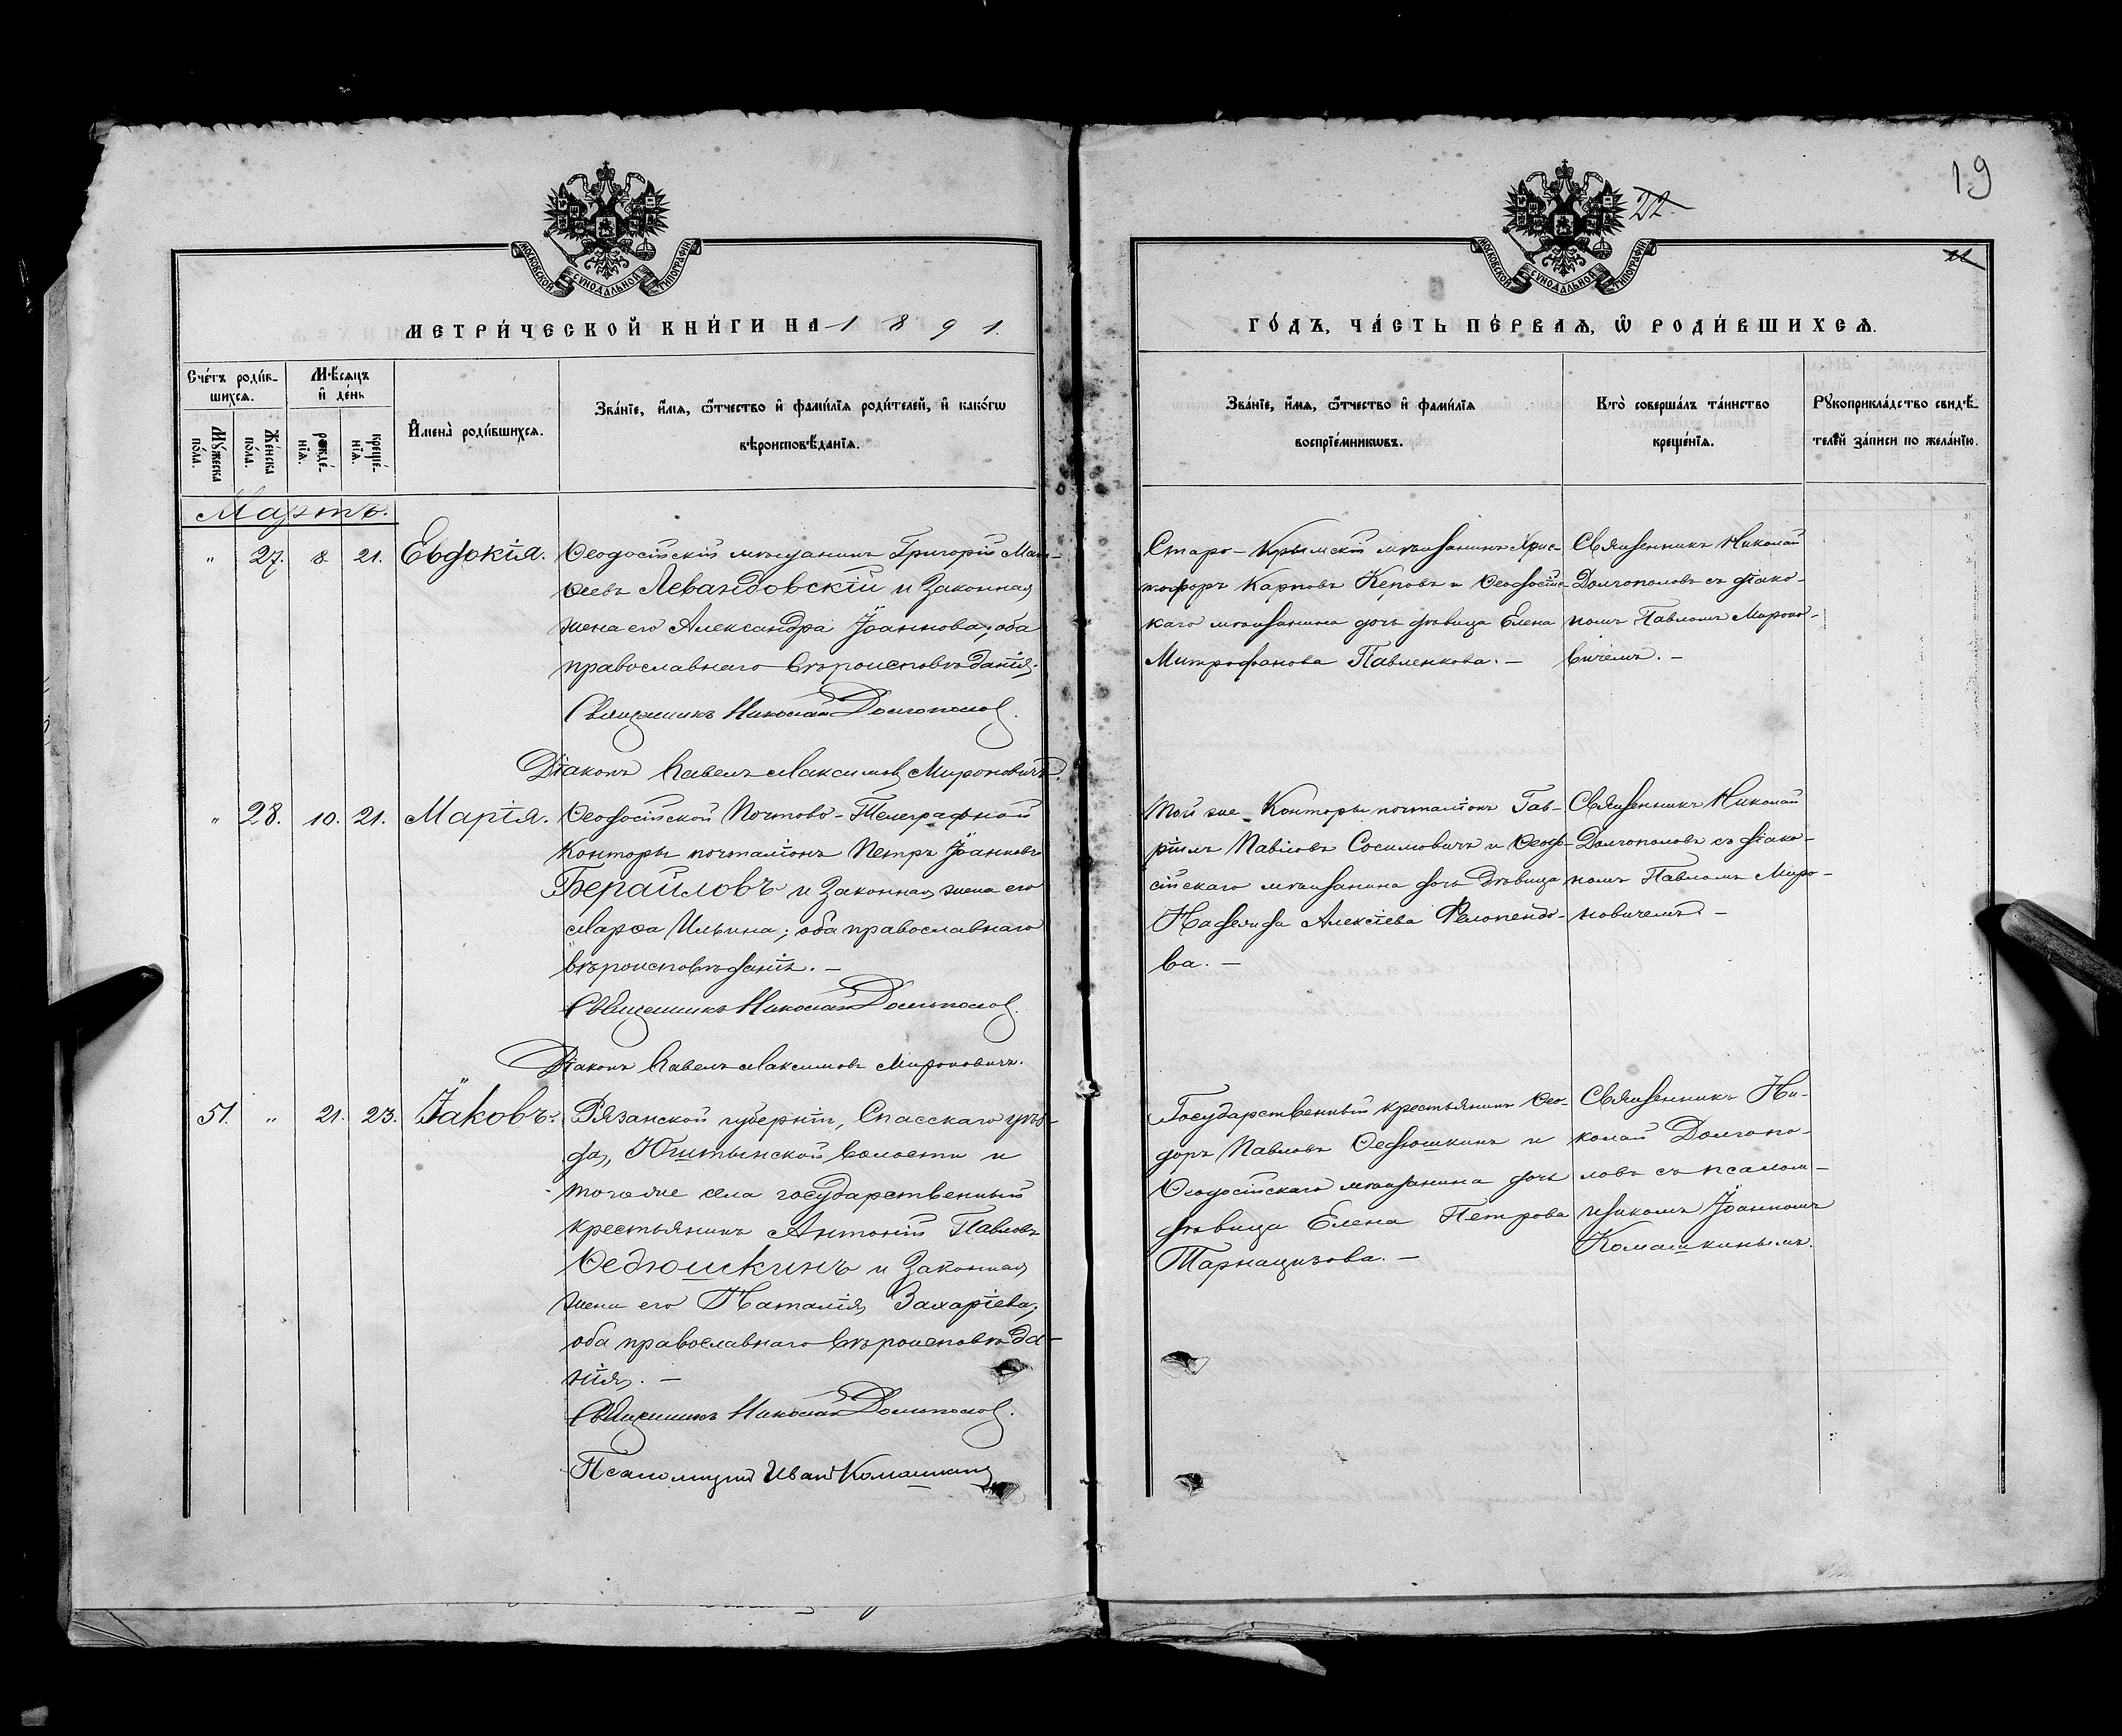 19
22.
22
МОСКОВСКОЙ СѴНОДАЛЬНОЙ ТИПОГРАФІИ
МОСКОВСКОЙ СѴНОДАЛЬНОЙ ТИПОГРАФІИ
МЕТРИ́ЧЕСКОЙ КНИ́ГИ НА 1891.
Сче́тъ роди́в-
шихсѧ.
Мѣ́сѧцъ
и҆ де́нь
Мꙋ́жеска по́ла.
Же́нска по́ла.
рожде́-
нїѧ.
креще́-
нїѧ.
И҆мена̀ роди́вшихсѧ.
Зва́нїе, и҆́мѧ, ѻ҆́тчество и҆ фами́лїѧ роди́телей, и҆ како́гѡ
вѣроисповѣ́данїѧ.
Мартъ.
" 27. 8. 21. Евдокія.
Ѳеодосійскій мѣщанинъ Григорій Мат-
ѳеевъ Левандовскій и законная
жена его Александра Іоаннова; оба
православнаго вѣроисповѣданія.
Священникъ Николай Долгополов.
Діаконъ Павелъ Максимов Мироновичъ.
" 28. 10. 21. Марія.
Ѳеодосійской Почтово-Телеграфной
Конторы почталіонъ Петръ Іоанновъ
Берайловъ и законная жена его
Марѳа Ильина; оба православнаго
вѣроисповѣданія. —
Священникъ Николай Долгополов.
Діаконъ Павелъ Максимовъ Мироновичъ.
51. " 21. 23. Іаковъ.
Рязанской губерніи, Спасскаго уѣз-
да, Юштынской волости и
тогоже села государственный
крестьянинъ Антоній Павловъ
Ѳедюшкинъ и законная
жена его Наталія Захаріева;
оба православнаго вѣроисповѣда-
нія. —
Священникъ Николай Долгополов.
Псаломщикъ Иван Комашкин
ГО́ДЪ, ЧА́СТЬ ПЕ́РВАѦ, Ѡ҆ РОДИ́ВШИХСѦ.
Зва́нїе, и҆́мѧ, ѻ҆́тчество и҆ фами́лїѧ
воспрїе́мникѡвъ.
Кто̀ соверша́лъ та́инство
креще́нїѧ.
Рꙋкоприкла́дство свидѣ́-
телей за́писи по жела́нїю.
Старо-Крымскій мѣщанинъ Хрис-
тофоръ Карповъ Кеповъ и Ѳеодосійс-
каго мѣщанина дочь дѣвица Елена
Митрофанова Павленкова. —
Священникъ Николай
Долгополовъ съ діако-
номъ Павломъ Мироно-
вичемъ. —
Той же Конторы почталіонъ Гав-
ріилъ Павловъ Сосимовичъ и Ѳеодо-
сійскаго мѣщанина дочь дѣвица
Надежда Алексіева Фелопендо-
ва. —
Священникъ Николай
Долгополовъ съ діако-
номъ Павломъ Миро-
новичемъ. —
Государственный крестьянинъ Ѳео-
доръ Павловъ Ѳедюшкинъ и
Ѳеодосійскаго мѣщанина дочь
дѣвица Елена Петрова
Тарнацизова. —
Священникъ Ни-
колай Долгопо-
ловъ съ псалом-
щикомъ Іоанномъ
Комашкинымъ.